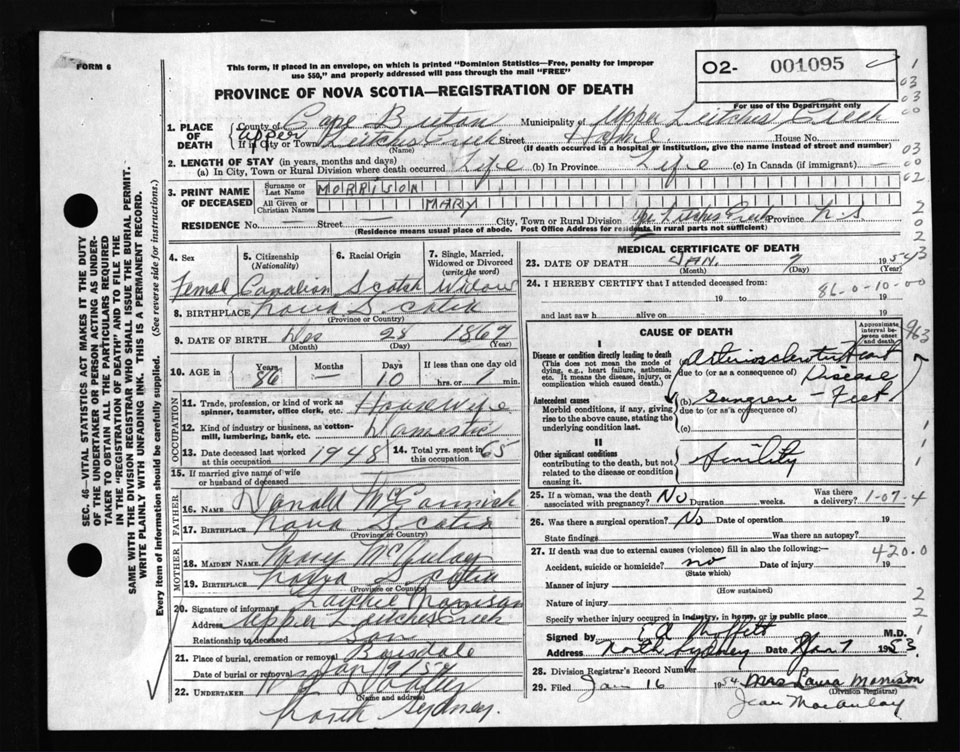 FORM 6
This form, if placed in an envelope, on which is printed "Dominion Statistics—Free, penalty for improper
use $50," and properly addressed will pass through the mail "FREE"
O2- 001095
For use of the Department only
PROVINCE OF NOVA SCOTIA—REGISTRATION OF DEATH
1. PLACE OF DEATH County of Cape Breton Municipality of Upper Leitches Creek
If in City or Town Upper Leitches Creek Street Home House No.
(Name) (If death occurred in a hospital or institution, give the name instead of street and number)
2. LENGTH OF STAY (in years, months and days)
(a) In City, Town or Rural Division where death occurred Life (b) In Province Life (c) In Canada (if immigrant) —
3. PRINT NAME OF DECEASED Surname or Last Name MORRISON
All Given or Christian Names MARY
RESIDENCE No. Street — City, Town or Rural Division Upr Leitches Creek Province N-S
(Residence means usual place of abode. Post Office Address for residents in rural parts not sufficient)
4. Sex Femal
5. Citizenship (Nationality) Canadian
6. Racial Origin Scotch
7. Single, Married, Widowed or Divorced (write the word) Widow
8. BIRTHPLACE Nova Scotia
(Province or Country)
9. DATE OF BIRTH Dec 28 1867
(Month) (Day) (Year)
10. AGE in Years 86 Months — Days 10 If less than one day old hrs. or min.
OCCUPATION
11. Trade, profession, or kind of work as spinner, teamster, office clerk, etc. Housewife
12. Kind of industry or business, as cotton-mill, lumbering, bank, etc. Domestic
13. Date deceased last worked at this occupation 1948
14. Total yrs. spent in this occupation 65
15. If married give name of wife or husband of deceased
FATHER
16. NAME Donald McCormick
17. BIRTHPLACE Nova Scotia
(Province or Country)
MOTHER
18. MAIDEN NAME Mary
19. BIRTHPLACE Nova Scotia
(Province or Country)
20. Signature of informant Morrison
Address Upper Leitches Creek
Relationship to deceased Son
21. Place of burial, cremation or removal Boisdale
Date of burial or removal Jan 9/54
22. UNDERTAKER
(Name and address)
North Sydney.
MEDICAL CERTIFICATE OF DEATH
23. DATE OF DEATH JAN. 7 1954
(Month) (Day) (Year)
24. I HEREBY CERTIFY that I attended deceased from:
19 to 19
and last saw h alive on 19
86-0-10-00
CAUSE OF DEATH
Approximate interval between onset and death
I
Disease or condition directly leading to death
(This does not mean the mode of dying, e.g., heart failure, asthenia, etc. It means the disease, injury, or complication which caused death.)
(a) Arteriosclerotic Heart Disease
due to (or as a consequence of)
Antecedent causes
Morbid conditions, if any, giving rise to the above cause, stating the underlying condition last.
(b) Gangrene — Feet
due to (or as a consequence of)
(c)
II
Other significant conditions
contributing to the death, but not related to the disease or condition causing it.
Senility
25. If a woman, was the death associated with pregnancy? No Duration weeks. Was there a delivery?
1-07-4
26. Was there a surgical operation? No Date of operation 19
State findings Was there an autopsy?
27. If death was due to external causes (violence) fill in also the following:—
420.0
Accident, suicide or homicide? no Date of injury 19
(State which)
Manner of injury
(How sustained)
Nature of injury
Specify whether injury occurred in industry, in home, or in public place
Signed by Moffett M.D.
Address North Sydney Date Jan 7 1953.
28. Division Registrar's Record Number
29. Filed Jan 16 1954 Mrs Laura Morrison
(Division Registrar)
Jean MacAulay
SEC. 46—VITAL STATISTICS ACT MAKES IT THE DUTY
OF THE UNDERTAKER OR PERSON ACTING AS UNDER-
TAKER TO OBTAIN ALL THE PARTICULARS REQUIRED
IN THE "REGISTRATION OF DEATH" AND TO FILE THE
SAME WITH THE DIVISION REGISTRAR WHO SHALL ISSUE THE BURIAL PERMIT.
WRITE PLAINLY WITH UNFADING INK. THIS IS A PERMANENT RECORD.
Every item of information should be carefully supplied. (See reverse side for instructions.)